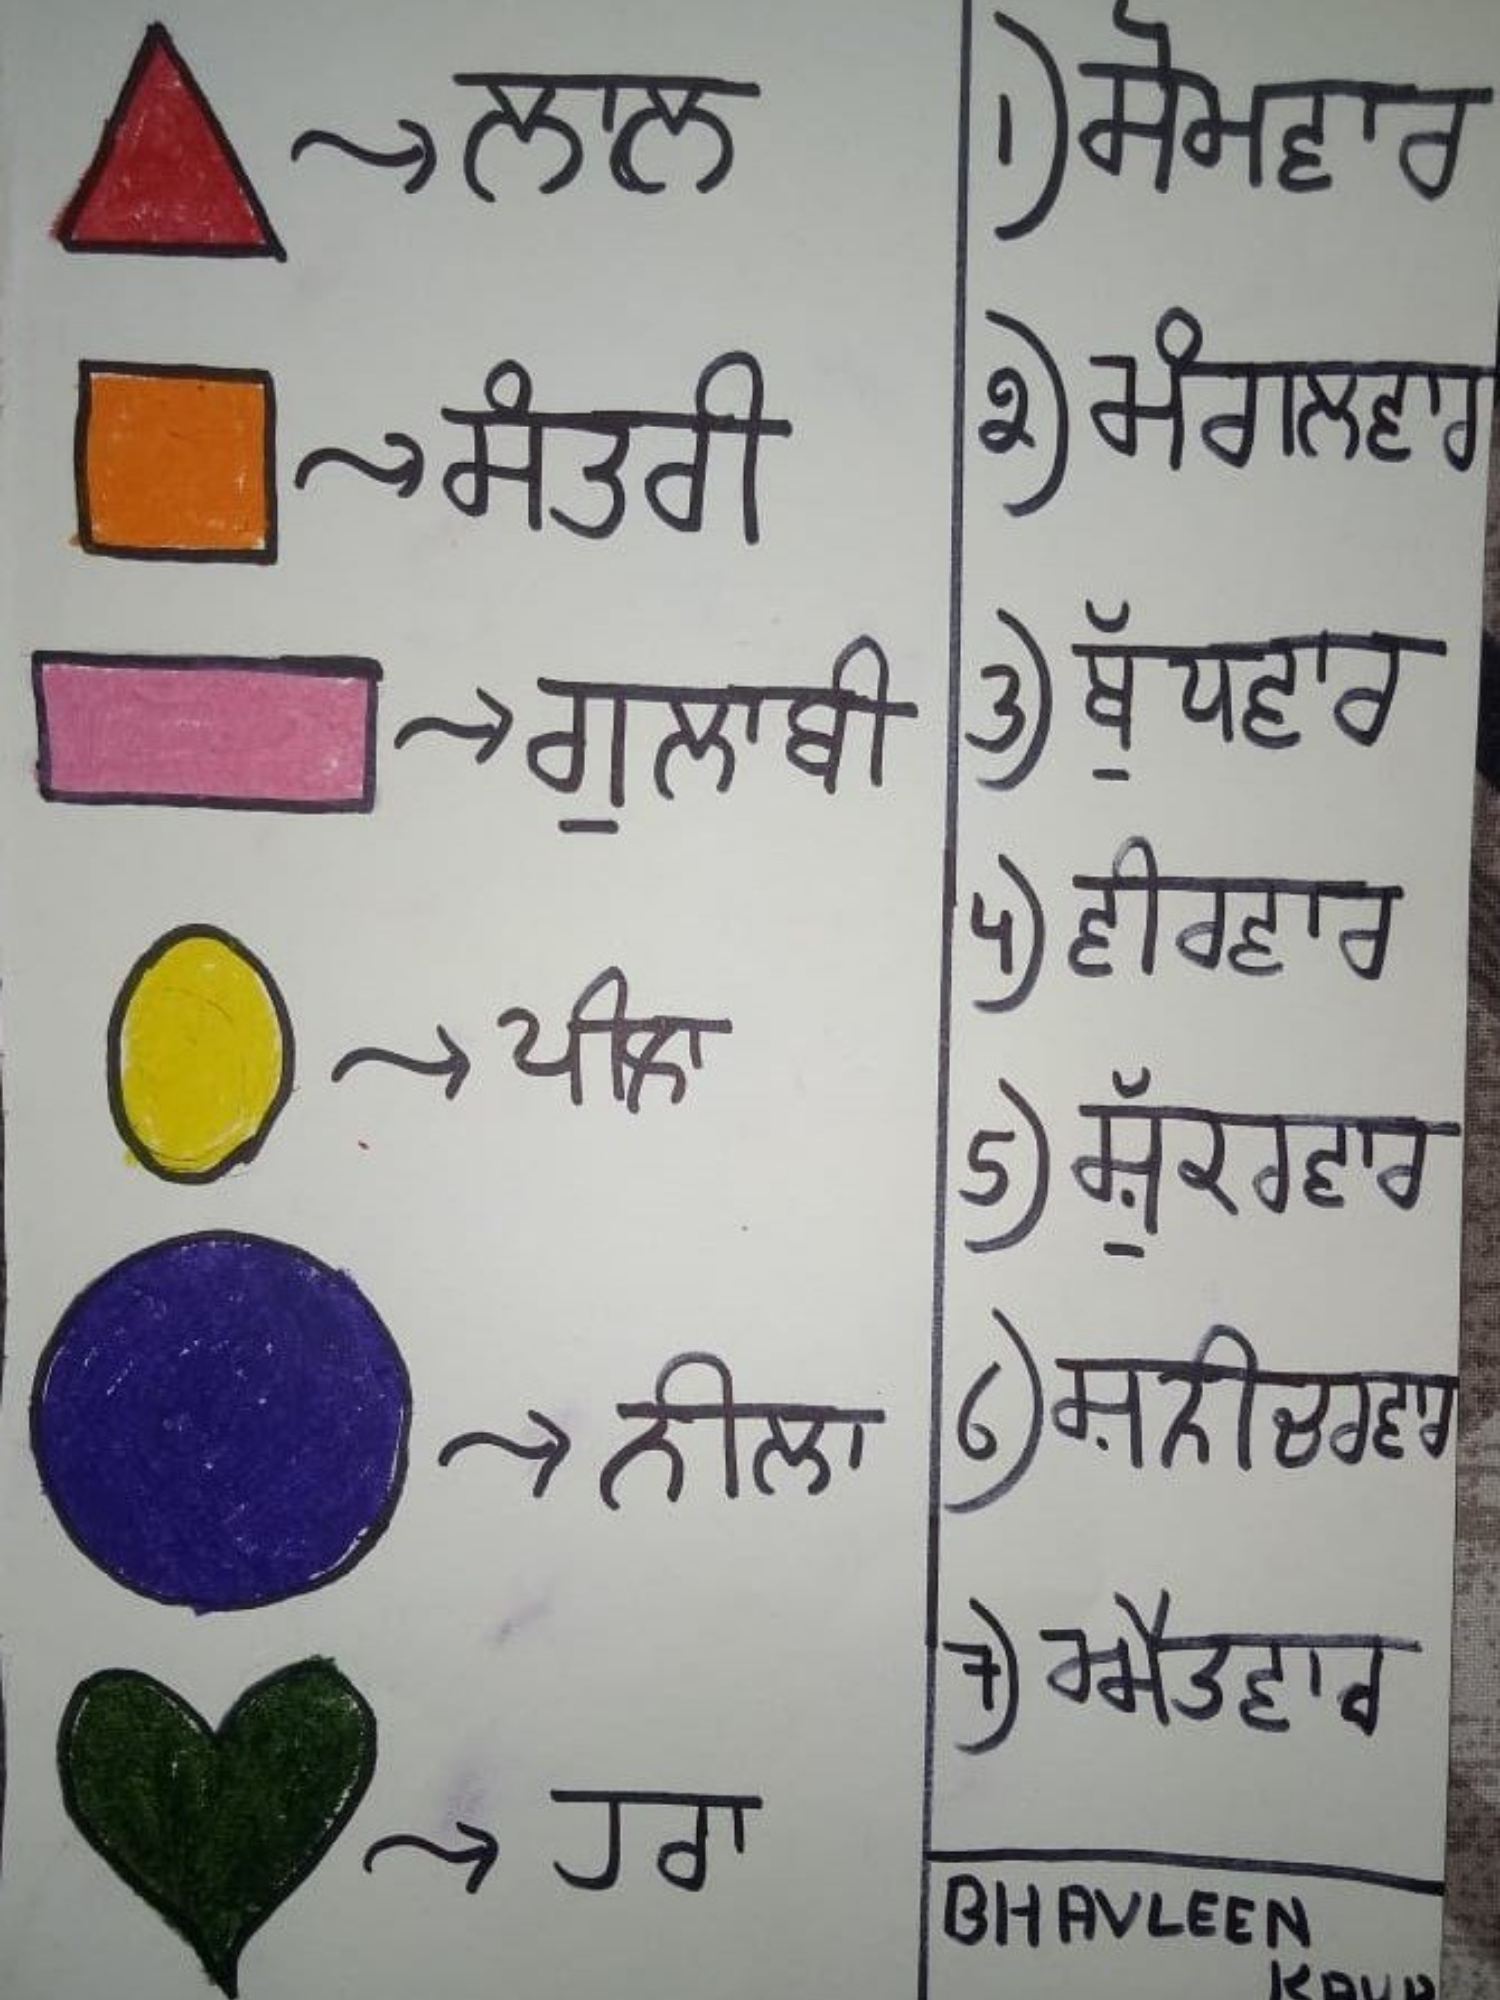 ਲਾਲ
ਸੰਤਰੀ
ਗੁਲਾਬੀ
ਪੀਲਾ
ਨੀਲਾ
ਹਰਾ
1) ਸੋਮਵਾਰ
2) ਮੰਗਲਵਾਰ
3) ਬੁੱਧਵਾਰ
4) ਵੀਰਵਾਰ
5) ਸ਼ੁੱਕਰਵਾਰ
6) ਸ਼ਨੀਚਰਵਾਰ
7) ਐਤਵਾਰ
BHAVLEEN
KAUR